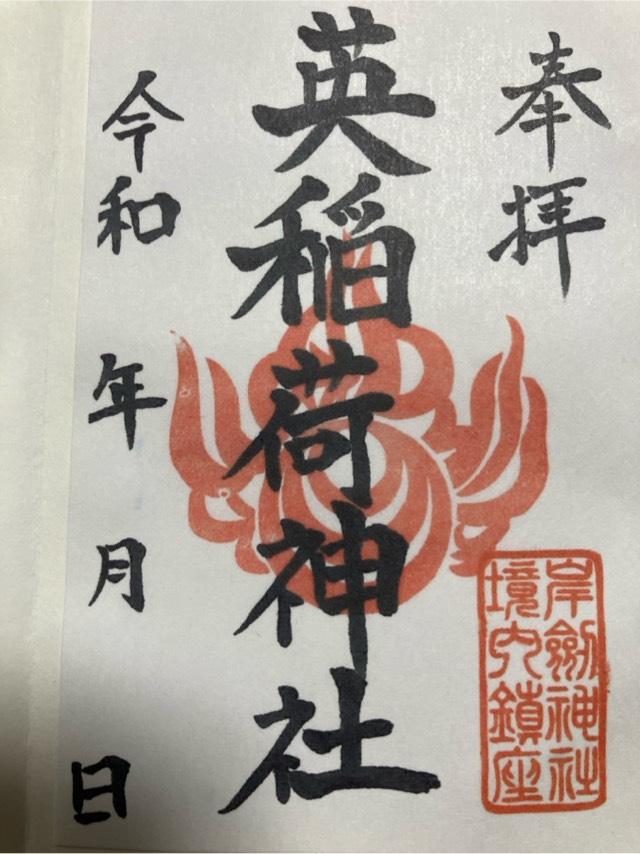 奉拝
英稲荷神社
令和 年 月 日
岸劔神社
境内鎮座